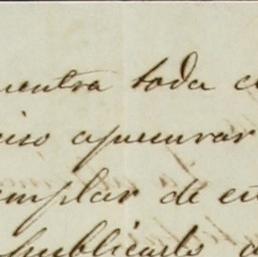 uentra toda c
iso apresurar
emplar de en
publicarlo a